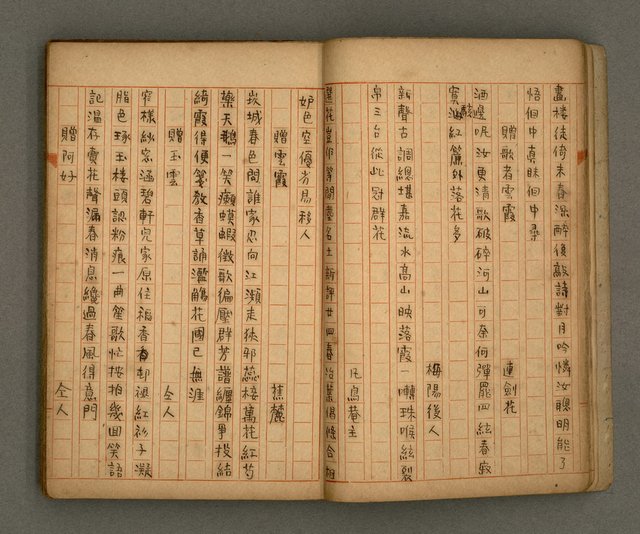 畫樓徒倚未春深醉後敲詩對月吟憐汝聰明能了
悟個中真昧個中尋
蓮劍花
贈歌者雲霞
酒邊呢汝更清歌破碎河山可奈何彈罷四絃春寂
寞海紅簾外落花多
梅陽後人
新聲古調總堪嘉流水高山映落霞囀珠喉絃裂
帛三台從此冠群花
鳥巷主
花 名士新評廿四春 合相
妒色空優劣易移人
贈雲霞
蕉麓
崁城春色問誰家忍向江瀕走狹邪蕊榜萬花紅芍
藥天鵝一笑癩蟆蝦徵歌徧壓群芳譜纏錦爭投結
綺霞得便箋教香草誦濫觴花國已無涯
贈玉雲
仝人
窄樣紗窓涵碧軒兒家原住稻香邨褪紅衫子凝
脂色琢玉樓頭認粉痕一曲笙歌忙按拍幾回笑語
記溫存賣花聲漏春消息纔過春風得意門
贈阿好
仝人